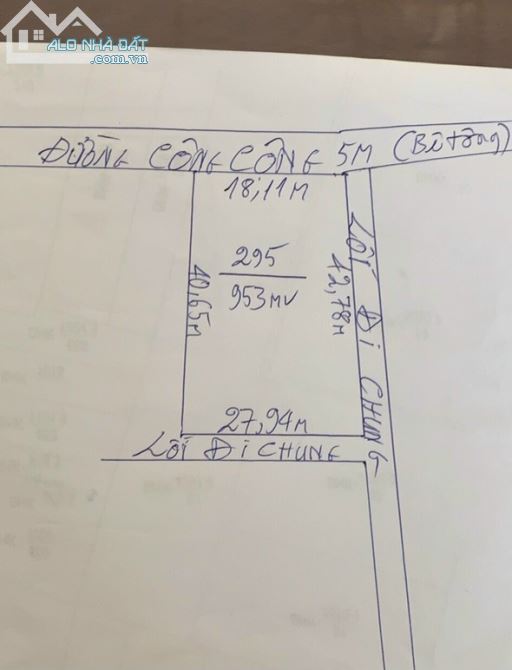 ALO NHÀ ĐẤT
.com.vn
ĐƯỜNG CÔNG CÔNG 5M (Bê tông)
18,11M
295
953mv
40,65m
42,78m
LỐI ĐI CHUNG
27,94m
LỐI ĐI CHUNG